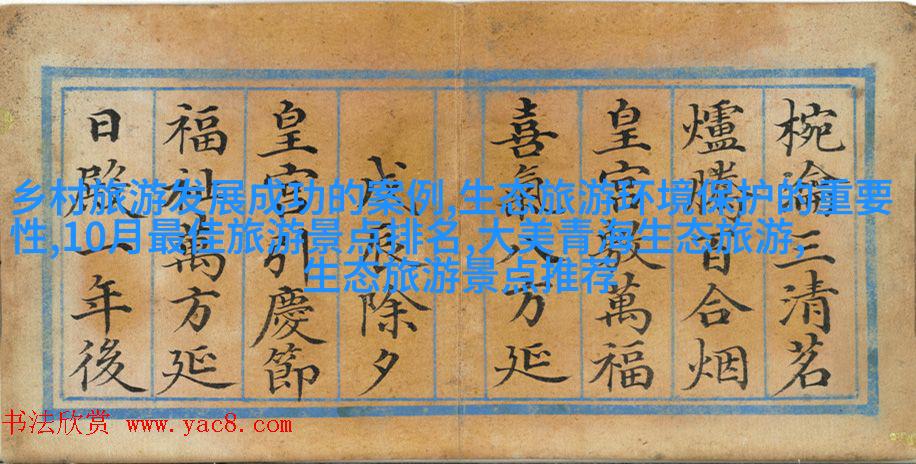 椀瀹三清茗
爐燐百合烟
皇宮敷萬福
喜氣八方延
戊辰除夕
皇宮引慶節
福祉萬方延
日殿一年後
乡村旅游发展成功的案例,生态旅游环境保护的重要
性,10月最佳旅游景点排名,大美青海生态旅游,
生态旅游景点推荐
书法欣赏 www.yac8.com